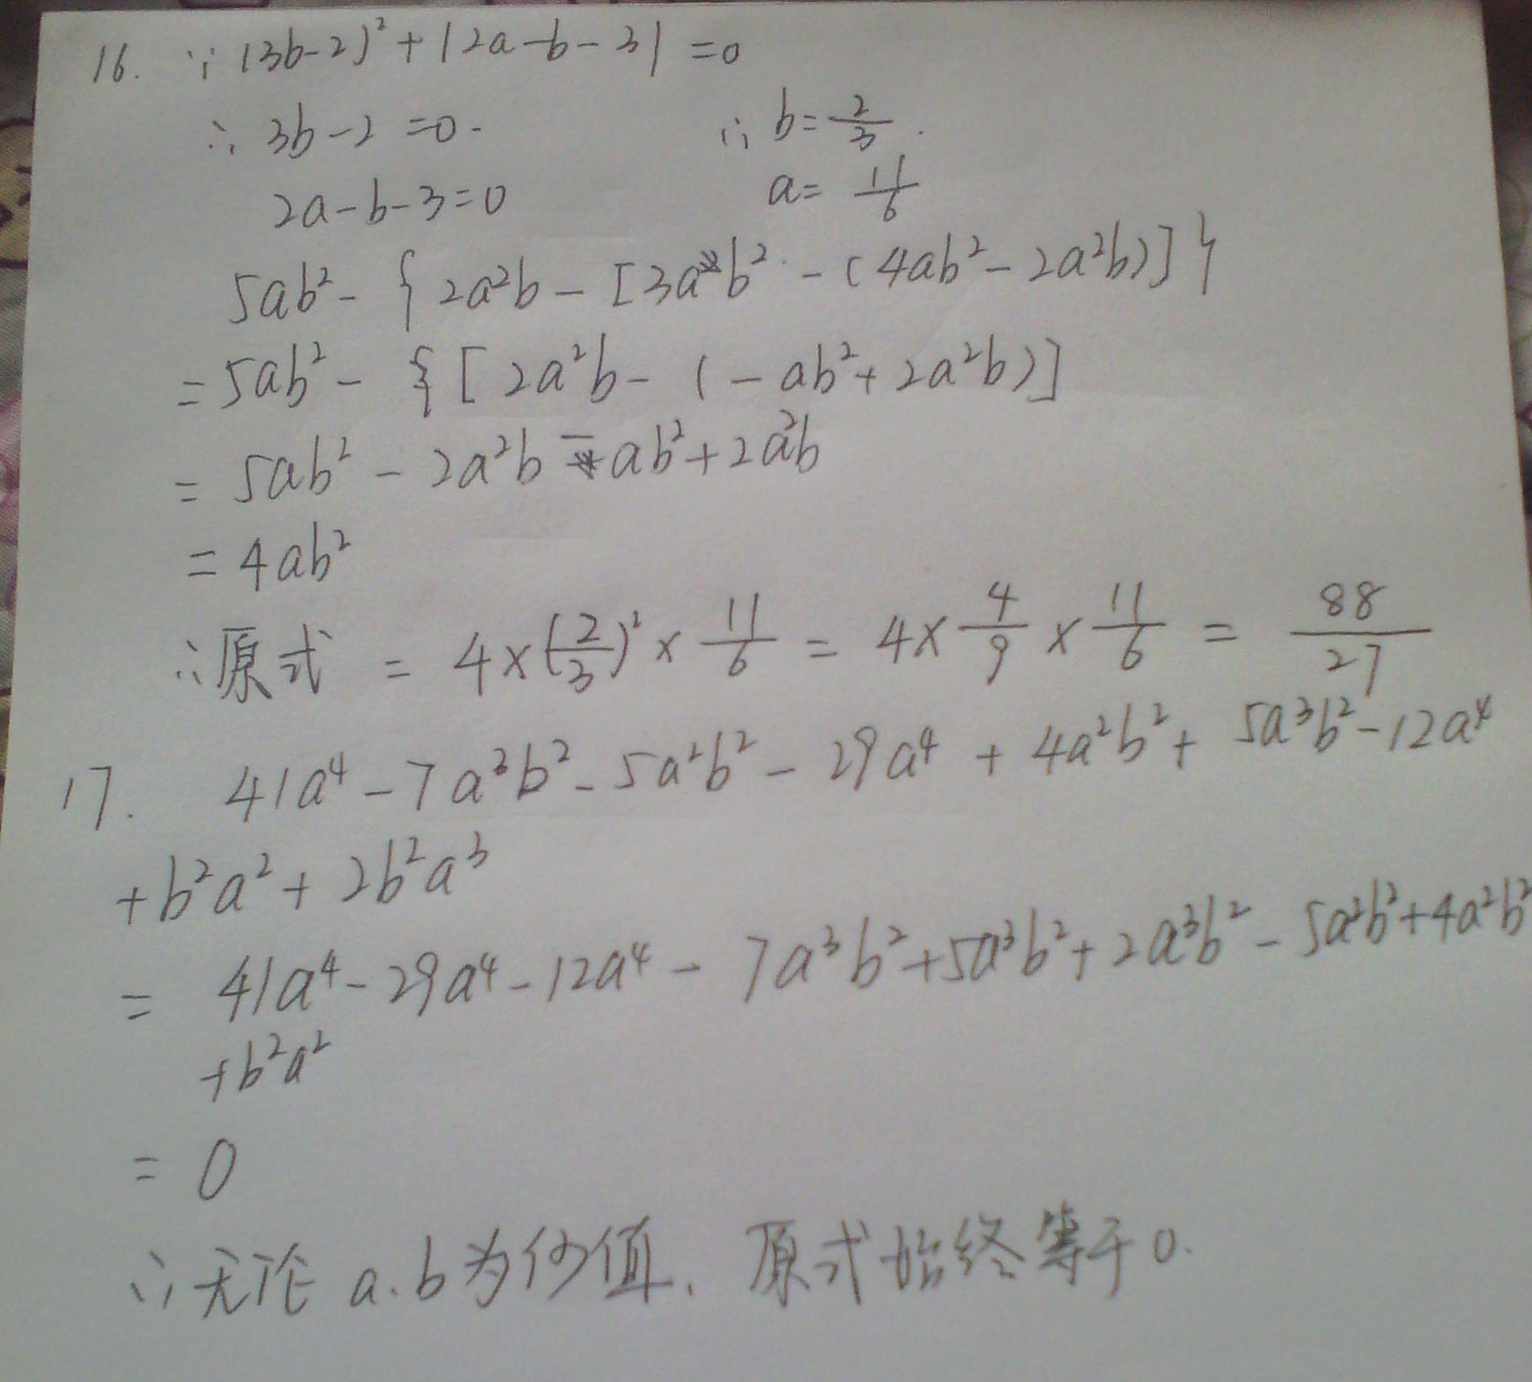 16. ∵ (3b-2)²+|2a-b-3|=0
∴ 3b-2=0. ∴ b=2/3.
2a-b-3=0 a=11/6
5ab²-{2a²b-[3ab²-(4ab²-2a²b)]}
=5ab²-[2a²b-(-ab²+2a²b)]
=5ab²-2a²b-ab²+2a²b
=4ab²
∴原式=4×(2/3)²×11/6=4×4/9×11/6=88/27
17. 41a⁴-7a³b²-5a²b²-29a⁴+4a²b²+5a³b²-12a⁴
+b²a²+2b²a³
=41a⁴-29a⁴-12a⁴-7a³b²+5a³b²+2a³b²-5a²b²+4a²b²
+b²a²
=0
∴无论a.b为何值,原式始终等于0.